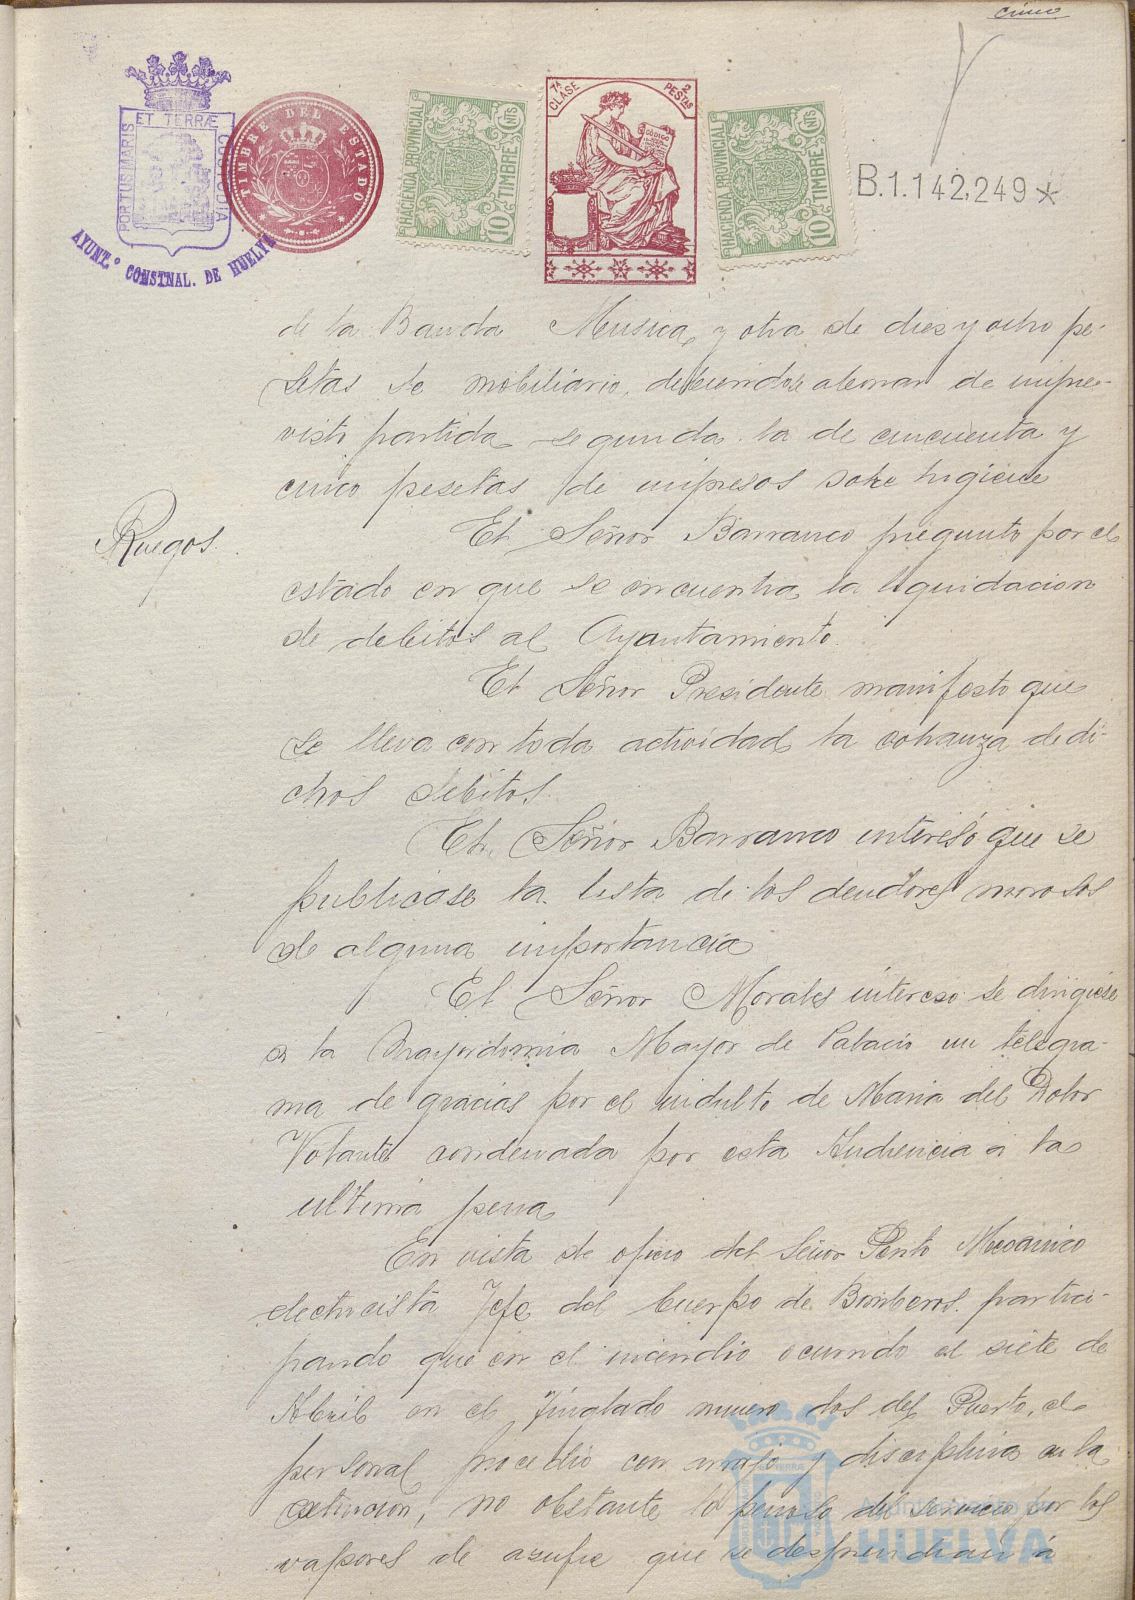 cinco
ET TERRÆ
PORTUS MARIS
CUSTODIA
AYUNT.º CONSTNAL. DE HUELVA
TIMBRE DEL ESTADO
HACIENDA PROVINCIAL
10 CNTS
TIMBRE
7ª CLASE
2 PESTAS
CÓDIGO
HACIENDA PROVINCIAL
10 CNTS
TIMBRE
B.1.142,249*
de la Banda Musica, y otra de diez y ocho pe-
setas de mobiliario, debiendose abonar de impre-
visto partida segunda la de cincuenta y
cinco pesetas de impresos sobre higiene
Ruegos.
El Señor Barranco pregunto por el
estado en que se encuentra la liquidacion
de debitos al Ayuntamiento.
El Señor Presidente manifesto que
se lleva con toda actividad la cobranza de di-
chos debitos.
El Señor Barranco interesó que se
publicase la lista de los deudores morosos
de alguna importancia
El Señor Morales intereso se dirigiese
a la Mayordomia Mayor de Palacio un telegra-
ma de gracias por el indulto de Maria del Dolor
Volante condenada por esta Audiencia a la
ultima pena
En vista de oficio del Señor Perito Mecanico
electricista Jefe del Cuerpo de Bomberos partici-
pando que en el incendio ocurrido el siete de
Abril en el Tinglado numero dos del Puerto, el
personal procedio con arrojo y disciplina en la
extincion, no obstante lo penoso del servicio por los
vapores de azufre que se desprendian á
Ayuntamiento de
HUELVA